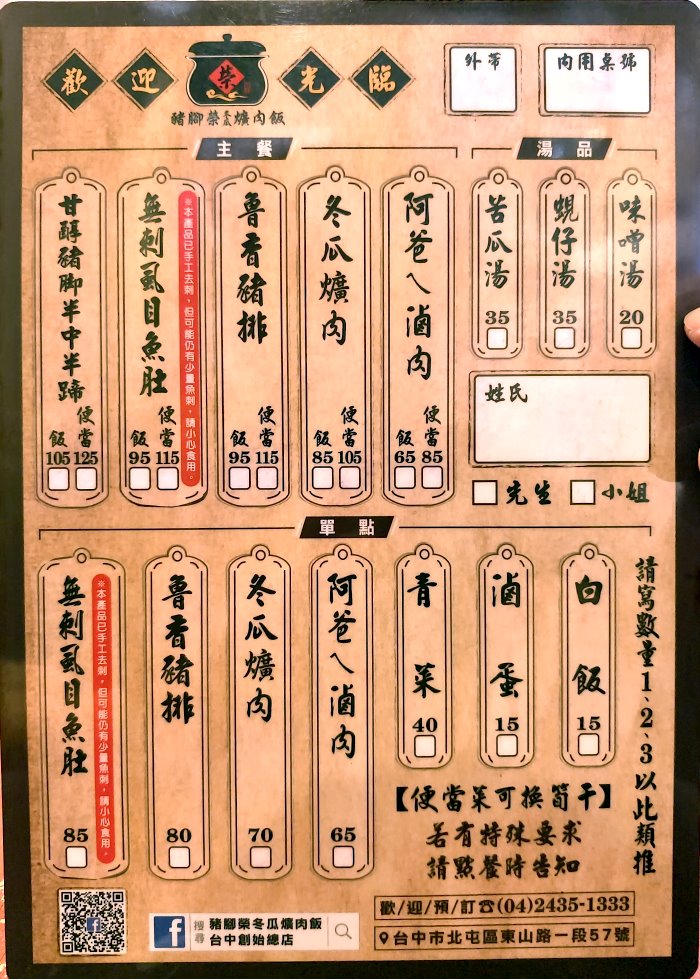 歡迎光臨
榮
豬腳榮冬瓜爌肉飯
外帶
內用桌號
主餐
湯品
甘醇豬脚半中半蹄
飯 105
便當 125
無刺虱目魚肚
※本產品已手工去刺，但可能仍有少量魚刺，請小心食用。
飯 95
便當 115
魯香豬排
飯 95
便當 115
冬瓜爌肉
飯 85
便當 105
阿爸ㄟ滷肉
飯 65
便當 85
苦瓜湯
35
蜆仔湯
35
味噌湯
20
姓氏
先生
小姐
單點
無刺虱目魚肚
※本產品已手工去刺，但可能仍有少量魚刺，請小心食用。
85
魯香豬排
80
冬瓜爌肉
70
阿爸ㄟ滷肉
65
青菜
40
滷蛋
15
白飯
15
請寫數量1、2、3以此類推
【便當菜可換筍干】
若有特殊要求
請點餐時告知
f
f
搜尋
豬腳榮冬瓜爌肉飯
台中創始總店
歡/迎/預/訂☎(04)2435-1333
台中市北屯區東山路一段57號